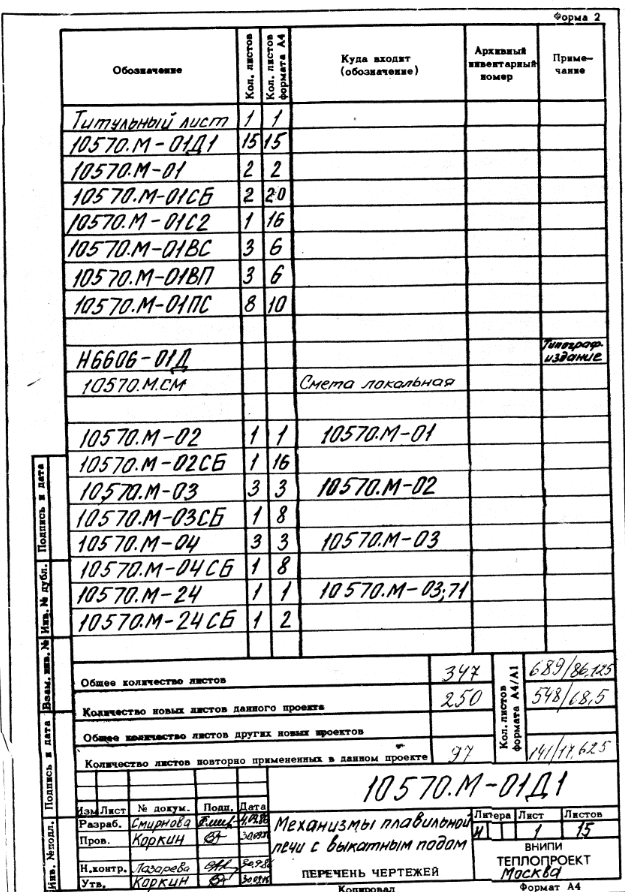 Форма 2
Обозначение Кол. листов Кол. листов формата А4 Куда входит (обозначение) Архивный инвентарный номер Приме-чание
Титульный лист 1 1
10570.М-01Д1 15 15
10570.М-01 2 2
10570.М-01СБ 2 20
10570.М-01С2 1 16
10570.М-01ВС 3 6
10570.М-01ВП 3 6
10570.М-01ПС 8 10
Н6606-01Д Типограф. издание
10570.М.СМ Смета локальная
10570.М-02 1 1 10570.М-01
10570.М-02СБ 1 16
10570.М-03 3 3 10570.М-02
10570.М-03СБ 1 8
10570.М-04 3 3 10570.М-03
10570.М-04СБ 1 8
10570.М-24 1 1 10570.М-03;71
10570.М-24СБ 1 2
Общее количество листов 347 689/86,125
Количество новых листов данного проекта 250 548/68,5
Общее количество листов других новых проектов
Количество листов повторно примененных в данном проекте 97 141/17,625
Кол. листов формата А4/А1
Подпись и дата
Инв. № дубл.
Взам. инв. №
Подпись и дата
Инв. №подл.
10570.М-01Д1
Изм Лист № докум. Подп. Дата
Разраб. Смирнова
Пров. Коркин
Н.контр. Лазарева
Утв. Коркин
Механизмы плавильной
печи с выкатным подом
ПЕРЕЧЕНЬ ЧЕРТЕЖЕЙ
Литера Лист Листов
И 1 15
ВНИПИ
ТЕПЛОПРОЕКТ
Москва
Копировал Формат А4